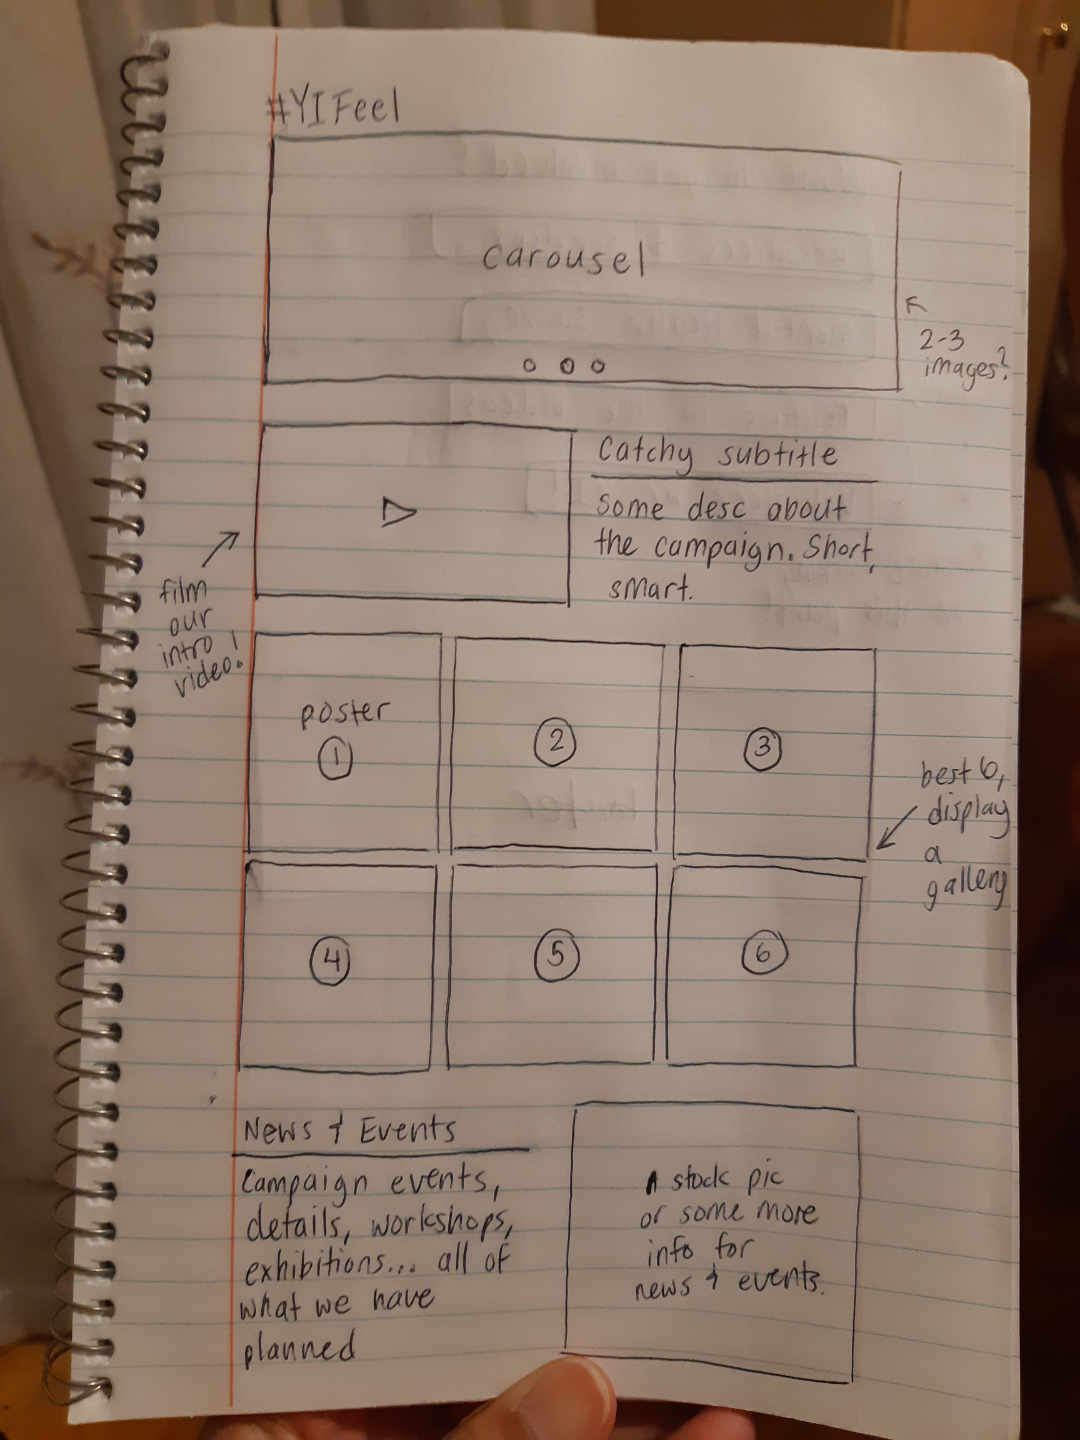 #YIFeel
carousel
2-3
images?
Catchy subtitle
Some desc about
the campaign. Short,
smart.
film
our
intro
video!
poster
1
2
3
best 6,
display
a
gallery
4
5
6
News & Events
Campaign events,
details, workshops,
exhibitions... all of
what we have
planned
A stock pic
or some more
info for
news & events.